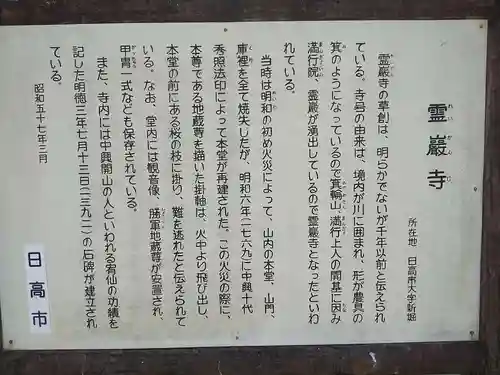 霊巖寺
れいがんじ
所在地 日高市大字新堀
霊巖寺の草創は、明らかでないが千年以前と伝えられ
ている。寺号の由来は、境内が川に囲まれ、形が農具の
箕のようになっているので箕輪山、満行上人の開基に因み
満行院、霊巖が湧出しているので霊巖寺となったといわ
れている。
当時は明和の初め火災によって、山内の本堂、山門、
庫裡を全て焼失したが、明和六年(一七六九)に中興十代
秀照法印によって本堂が再建された。この火災の際に、
本尊である地蔵尊を描いた掛軸は、火中より飛び出し、
本堂の前にある桜の枝に掛り、難を逃れたと伝えられて
いる。なお、堂内には観音像、勝軍地蔵尊が安置され、
甲冑一式なども保存されている。
また、寺内には中興開山の人といわれる宥仙の功績を
記した明徳三年七月十三日(一三九二)の石碑が建立され
ている。
昭和五十七年三月
日高市